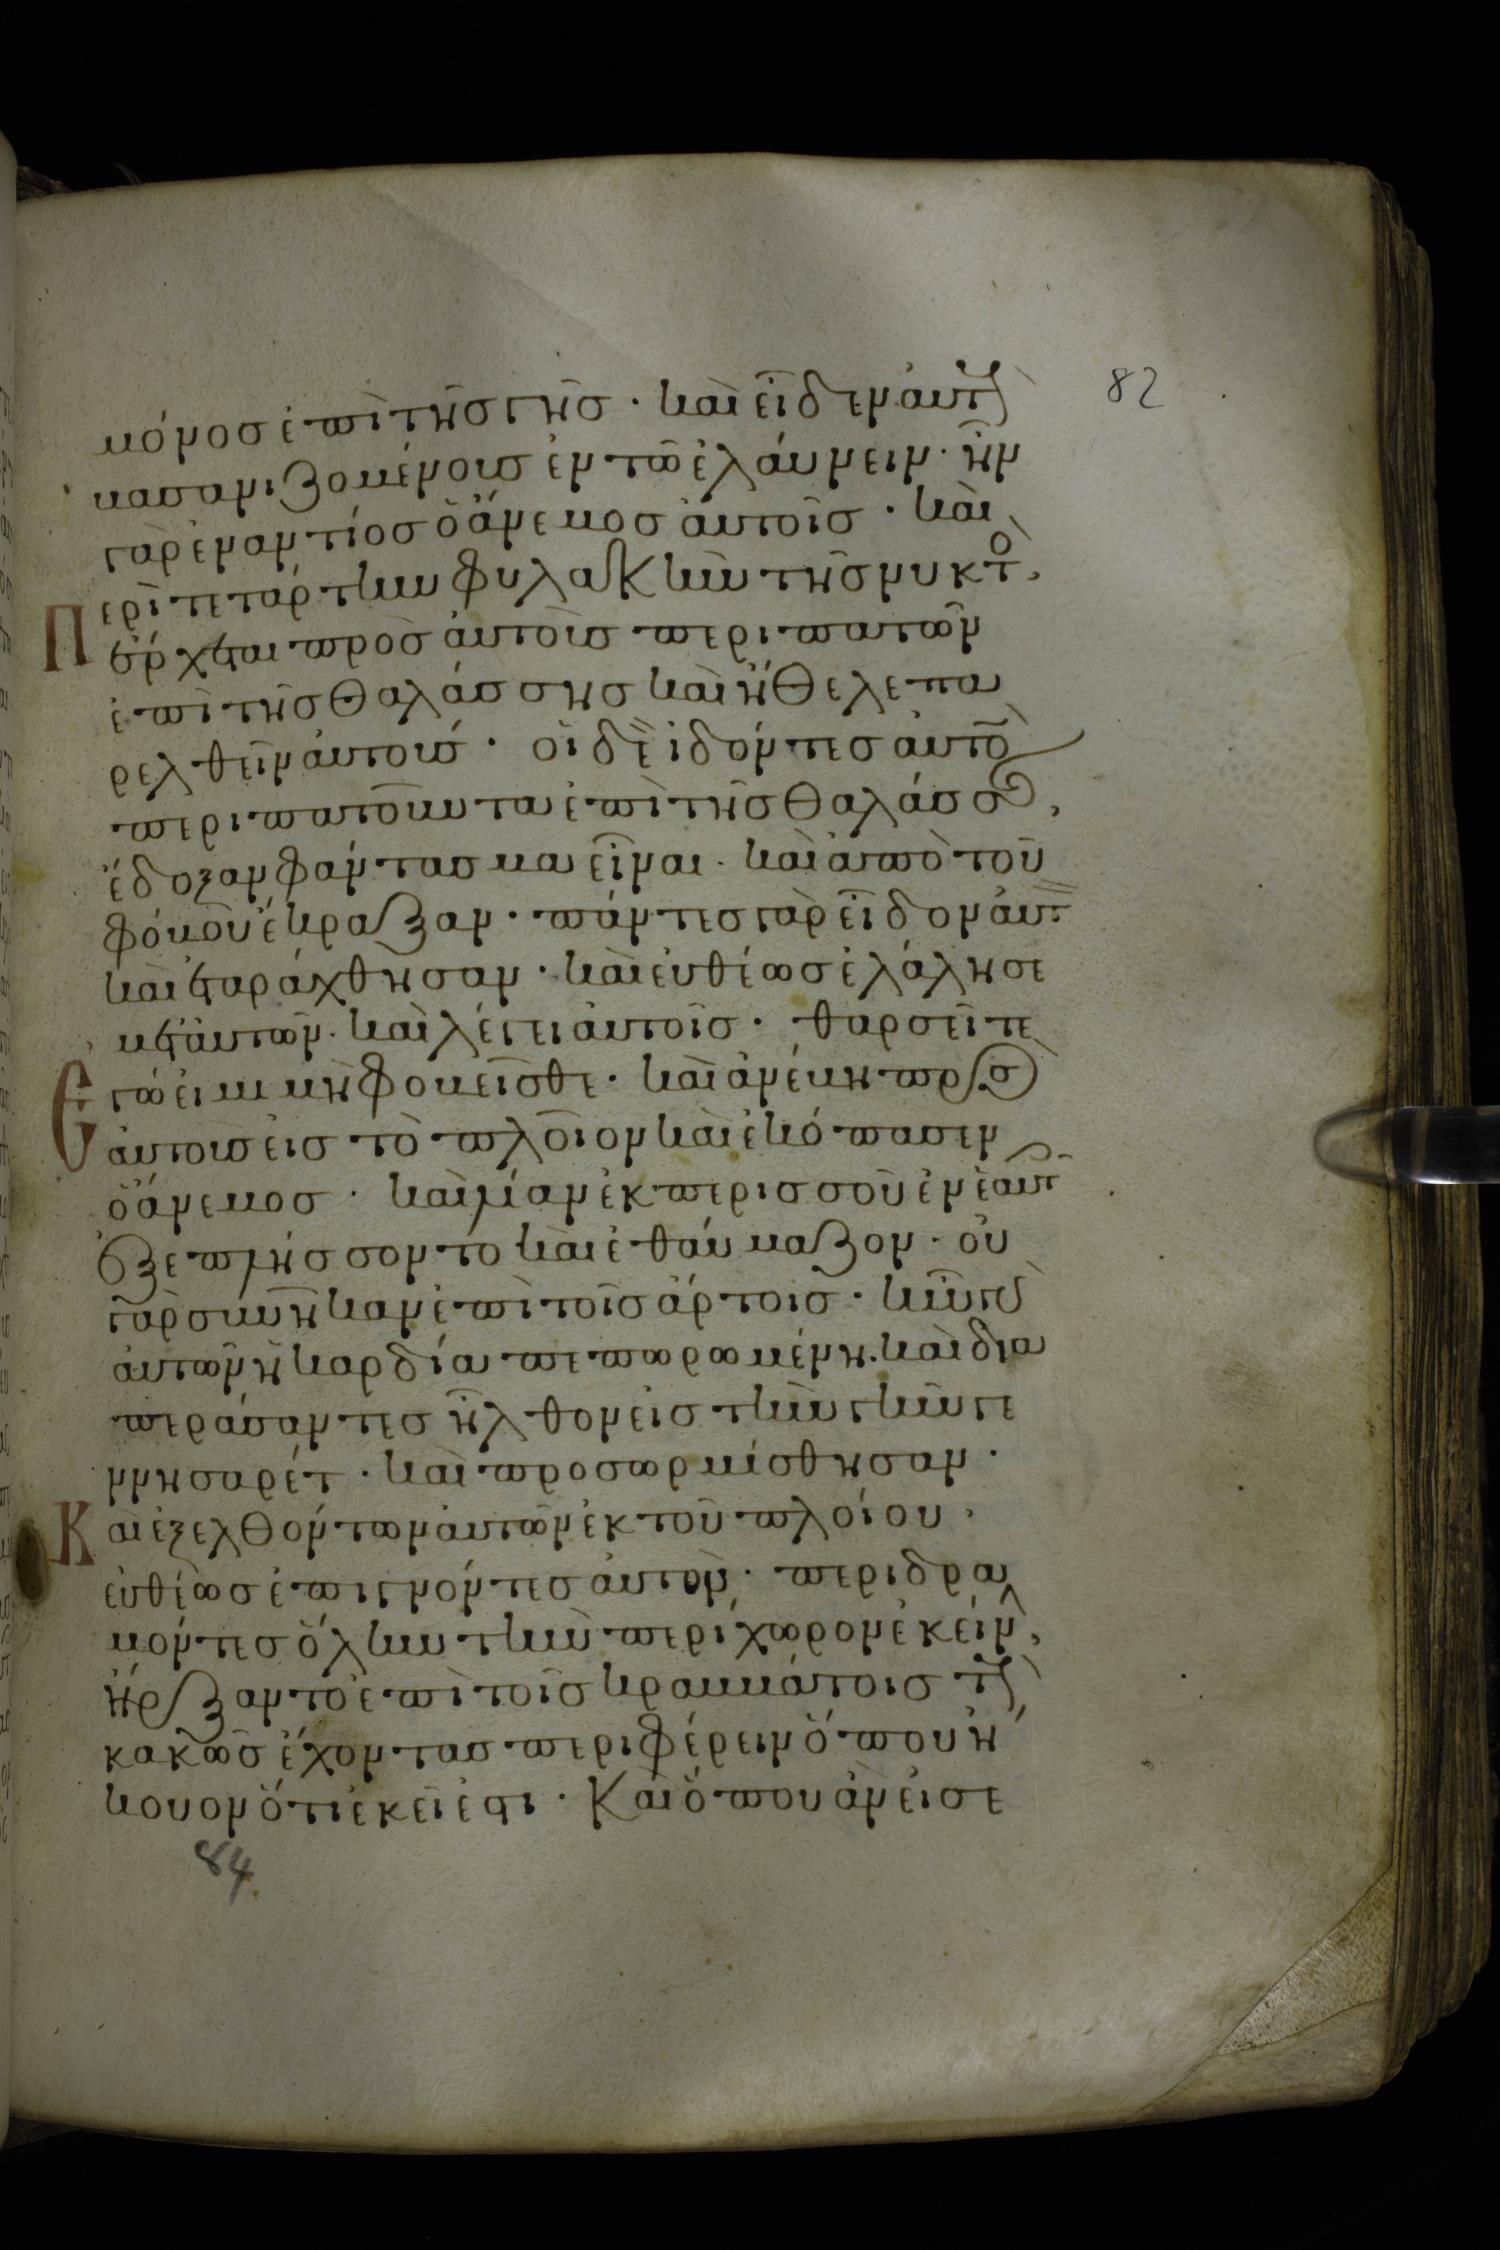 82
μόνος ἐπὶ τῆς γῆς · καὶ εἶδεν αὐτοὺς
βασανιζομένους ἐν τῶ ἐλάυνειν · ἦν
γὰρ ἐναντίος ὁ ἄνεμος ἀυτοῖς · καὶ
Περὶ τετάρτην φυλακὴν τῆς νυκτὸ,
ἔρχεται πρὸς ἀυτοὺς περιπατῶν
ἐπὶ τῆς θαλάσσης καὶ ἤθελε πα
ρελθεῖν ἀυτούς · οἱ δὲ ἰδόντες ἀυτὸ
περιπατοῦντα ἐπὶ τῆς θαλάσσης,
ἔδοξαν φάντασμα εἶναι · καὶ ἀπὸ τοῦ
φόβου ἔκραξαν · πάντες γὰρ εἶδον ἀυτ
καὶ ἐταράχθησαν · καὶ ἐυθέως ἐλάλησε
μετ ἀυτῶν · καὶ λέγει ἀυτοῖς · θαρσεῖτε
Ἐγώ εἰμι μὴ φοβεῖσθε · καὶ ἀνέβη πρὸς
ἀυτοὺς εἰς τὸ πλοῖον καὶ ἐκόπασεν
ὁ ἄνεμος · καὶ λίαν ἐκ περισσοῦ ἐν ἑαυτ
ἐξεπλήσσοντο καὶ ἐθάυμαζον · οὐ
γὰρ συνῆκαν ἐπὶ τοῖς ἄρτοις · ἦν γὰρ
ἀυτῶν ἡ καρδία πεπωρωμένη · καὶ δια
περάσαντες ἦλθον εἰς τὴν γῆν γε
ννησαρέτ · καὶ προσωρμίσθησαν ·
Και ἐξελθόντων ἀυτῶν ἐκ τοῦ πλοίου,
ἐυθέως ἐπιγνόντες ἀυτὸν · περιδρα
μόντες ὅλην τὴν περίχωρον ἐκείν,
ἤρξαντο ἐπὶ τοῖς κραββάτοις τοὺς
κακῶς ἔχοντας περιφέρειν ὅπου ἤ
κουον ὅτι ἐκεῖ ἐστι · Καὶ ὅπου ἂν εἰσε
84